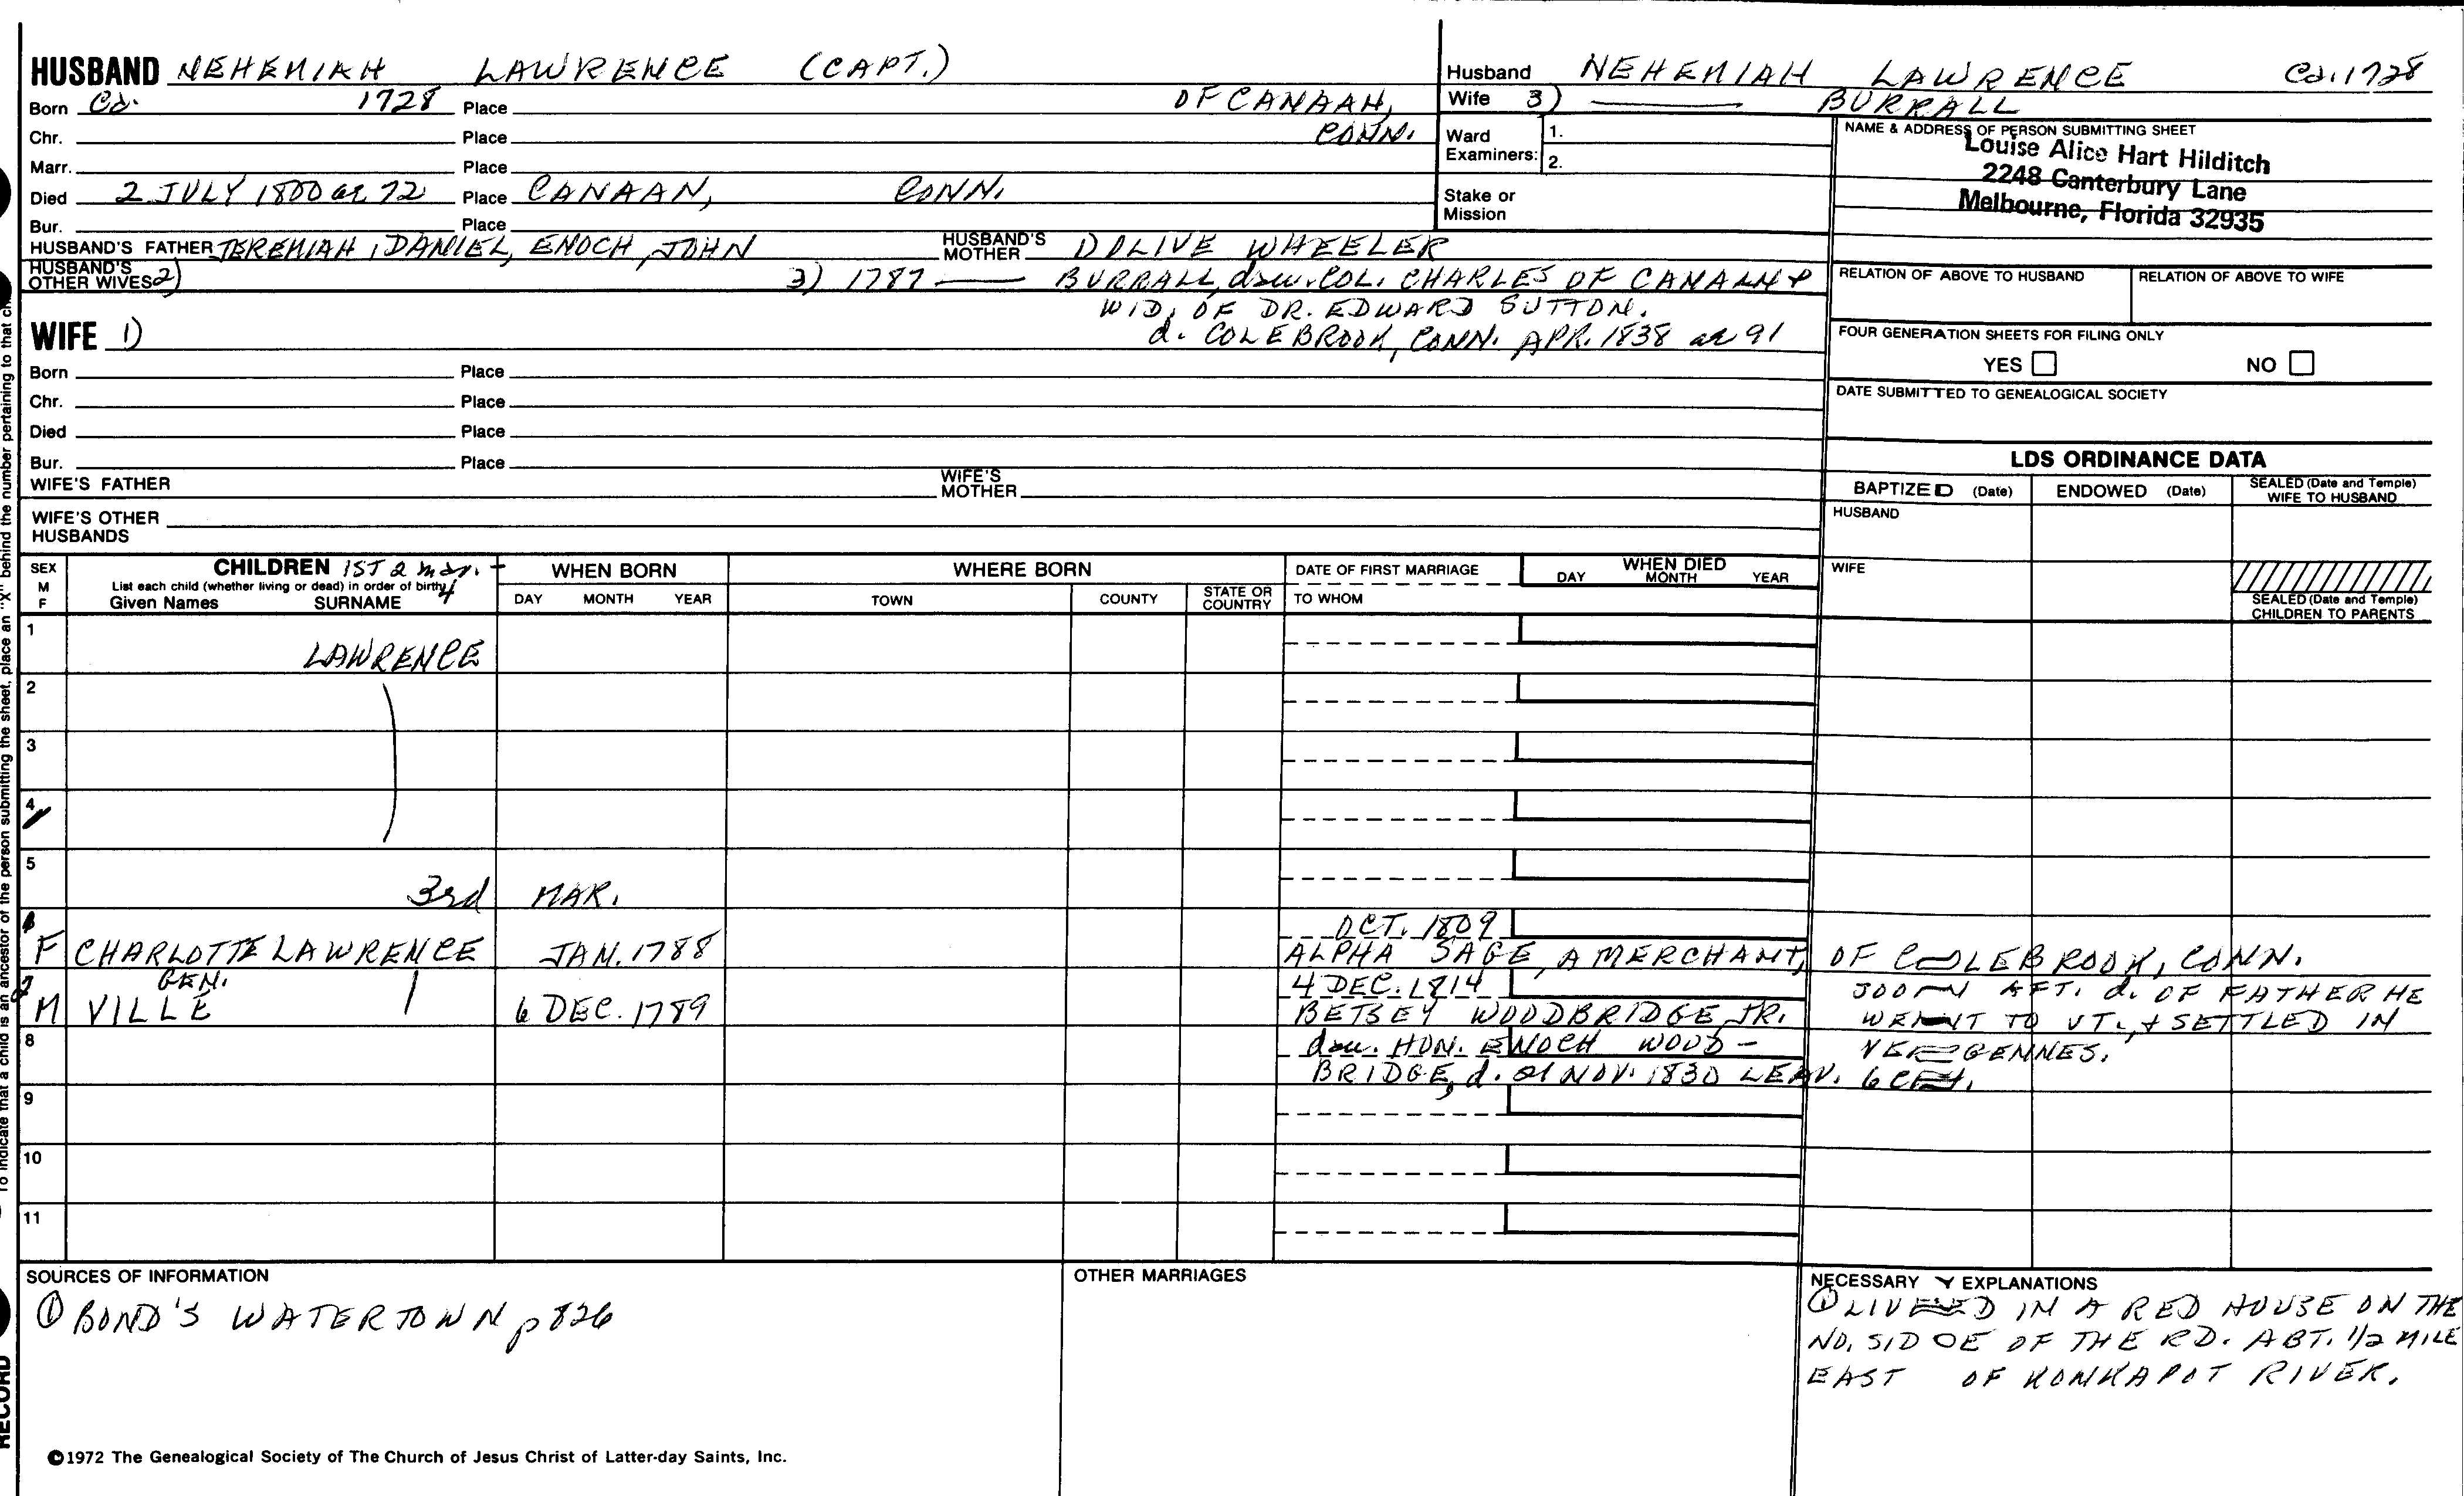 HUSBAND NEHEMIAH LAWRENCE (CAPT.)
Born Ca. 1728 Place OF CANAAN,
Chr. Place CONN.
Marr. Place
Died 2 JULY 1800 ae 72 Place CANAAN, CONN.
Bur. Place
HUSBAND'S FATHER JEREMIAH, DANIEL, ENOCH, JOHN HUSBAND'S MOTHER OLIVE WHEELER
HUSBAND'S OTHER WIVES 2) 3) 1787 —— BURRALL, dau. COL. CHARLES OF CANAAN +
WID. OF DR. EDWARD SUTTON.
d. COLEBROOK, CONN. APR. 1838 ae 91
WIFE 1)
Born Place
Chr. Place
Died Place
Bur. Place
WIFE'S FATHER WIFE'S MOTHER
WIFE'S OTHER HUSBANDS
Husband NEHEMIAH LAWRENCE Ca. 1728
Wife 3) —— BURRALL
Ward Examiners: 1.
2.
Stake or Mission
NAME & ADDRESS OF PERSON SUBMITTING SHEET
Louise Alice Hart Hilditch
2248 Canterbury Lane
Melbourne, Florida 32935
RELATION OF ABOVE TO HUSBAND RELATION OF ABOVE TO WIFE
FOUR GENERATION SHEETS FOR FILING ONLY
YES NO
DATE SUBMITTED TO GENEALOGICAL SOCIETY
LDS ORDINANCE DATA
BAPTIZED (Date) ENDOWED (Date) SEALED (Date and Temple) WIFE TO HUSBAND
HUSBAND
WIFE
SEALED (Date and Temple) CHILDREN TO PARENTS
SEX M F
CHILDREN 1ST 2 mar. +
List each child (whether living or dead) in order of birth 4
Given Names SURNAME
WHEN BORN
DAY MONTH YEAR
WHERE BORN
TOWN COUNTY STATE OR COUNTRY
DATE OF FIRST MARRIAGE
TO WHOM
WHEN DIED
DAY MONTH YEAR
1 LAWRENCE
2
3
4
5 3rd MAR.
6 OCT. 1809
F CHARLOTTE LAWRENCE JAN. 1788 ALPHA SAGE, A MERCHANT, OF COLEBROOK, CONN.
7 GEN. 4 DEC. 1814 SOON AFT. d. OF FATHER HE
M VILLE 6 DEC. 1789 BETSEY WOODBRIDGE, JR. WENT TO VT., + SETTLED IN
8 dau. HON. ENOCH WOOD- VERGENNES.
BRIDGE, d. 21 NOV. 1830 LEAV. 6 CH.
9
10
11
SOURCES OF INFORMATION
① BOND'S WATERTOWN p 826
OTHER MARRIAGES
NECESSARY EXPLANATIONS
① LIVED IN A RED HOUSE ON THE
NO. SIDE OF THE RD. ABT. 1/2 MILE
EAST OF KONKAPOT RIVER.
©1972 The Genealogical Society of The Church of Jesus Christ of Latter-day Saints, Inc.
To indicate that a child is an ancestor of the person submitting the sheet, place an "X" behind the number pertaining to that
RECORD